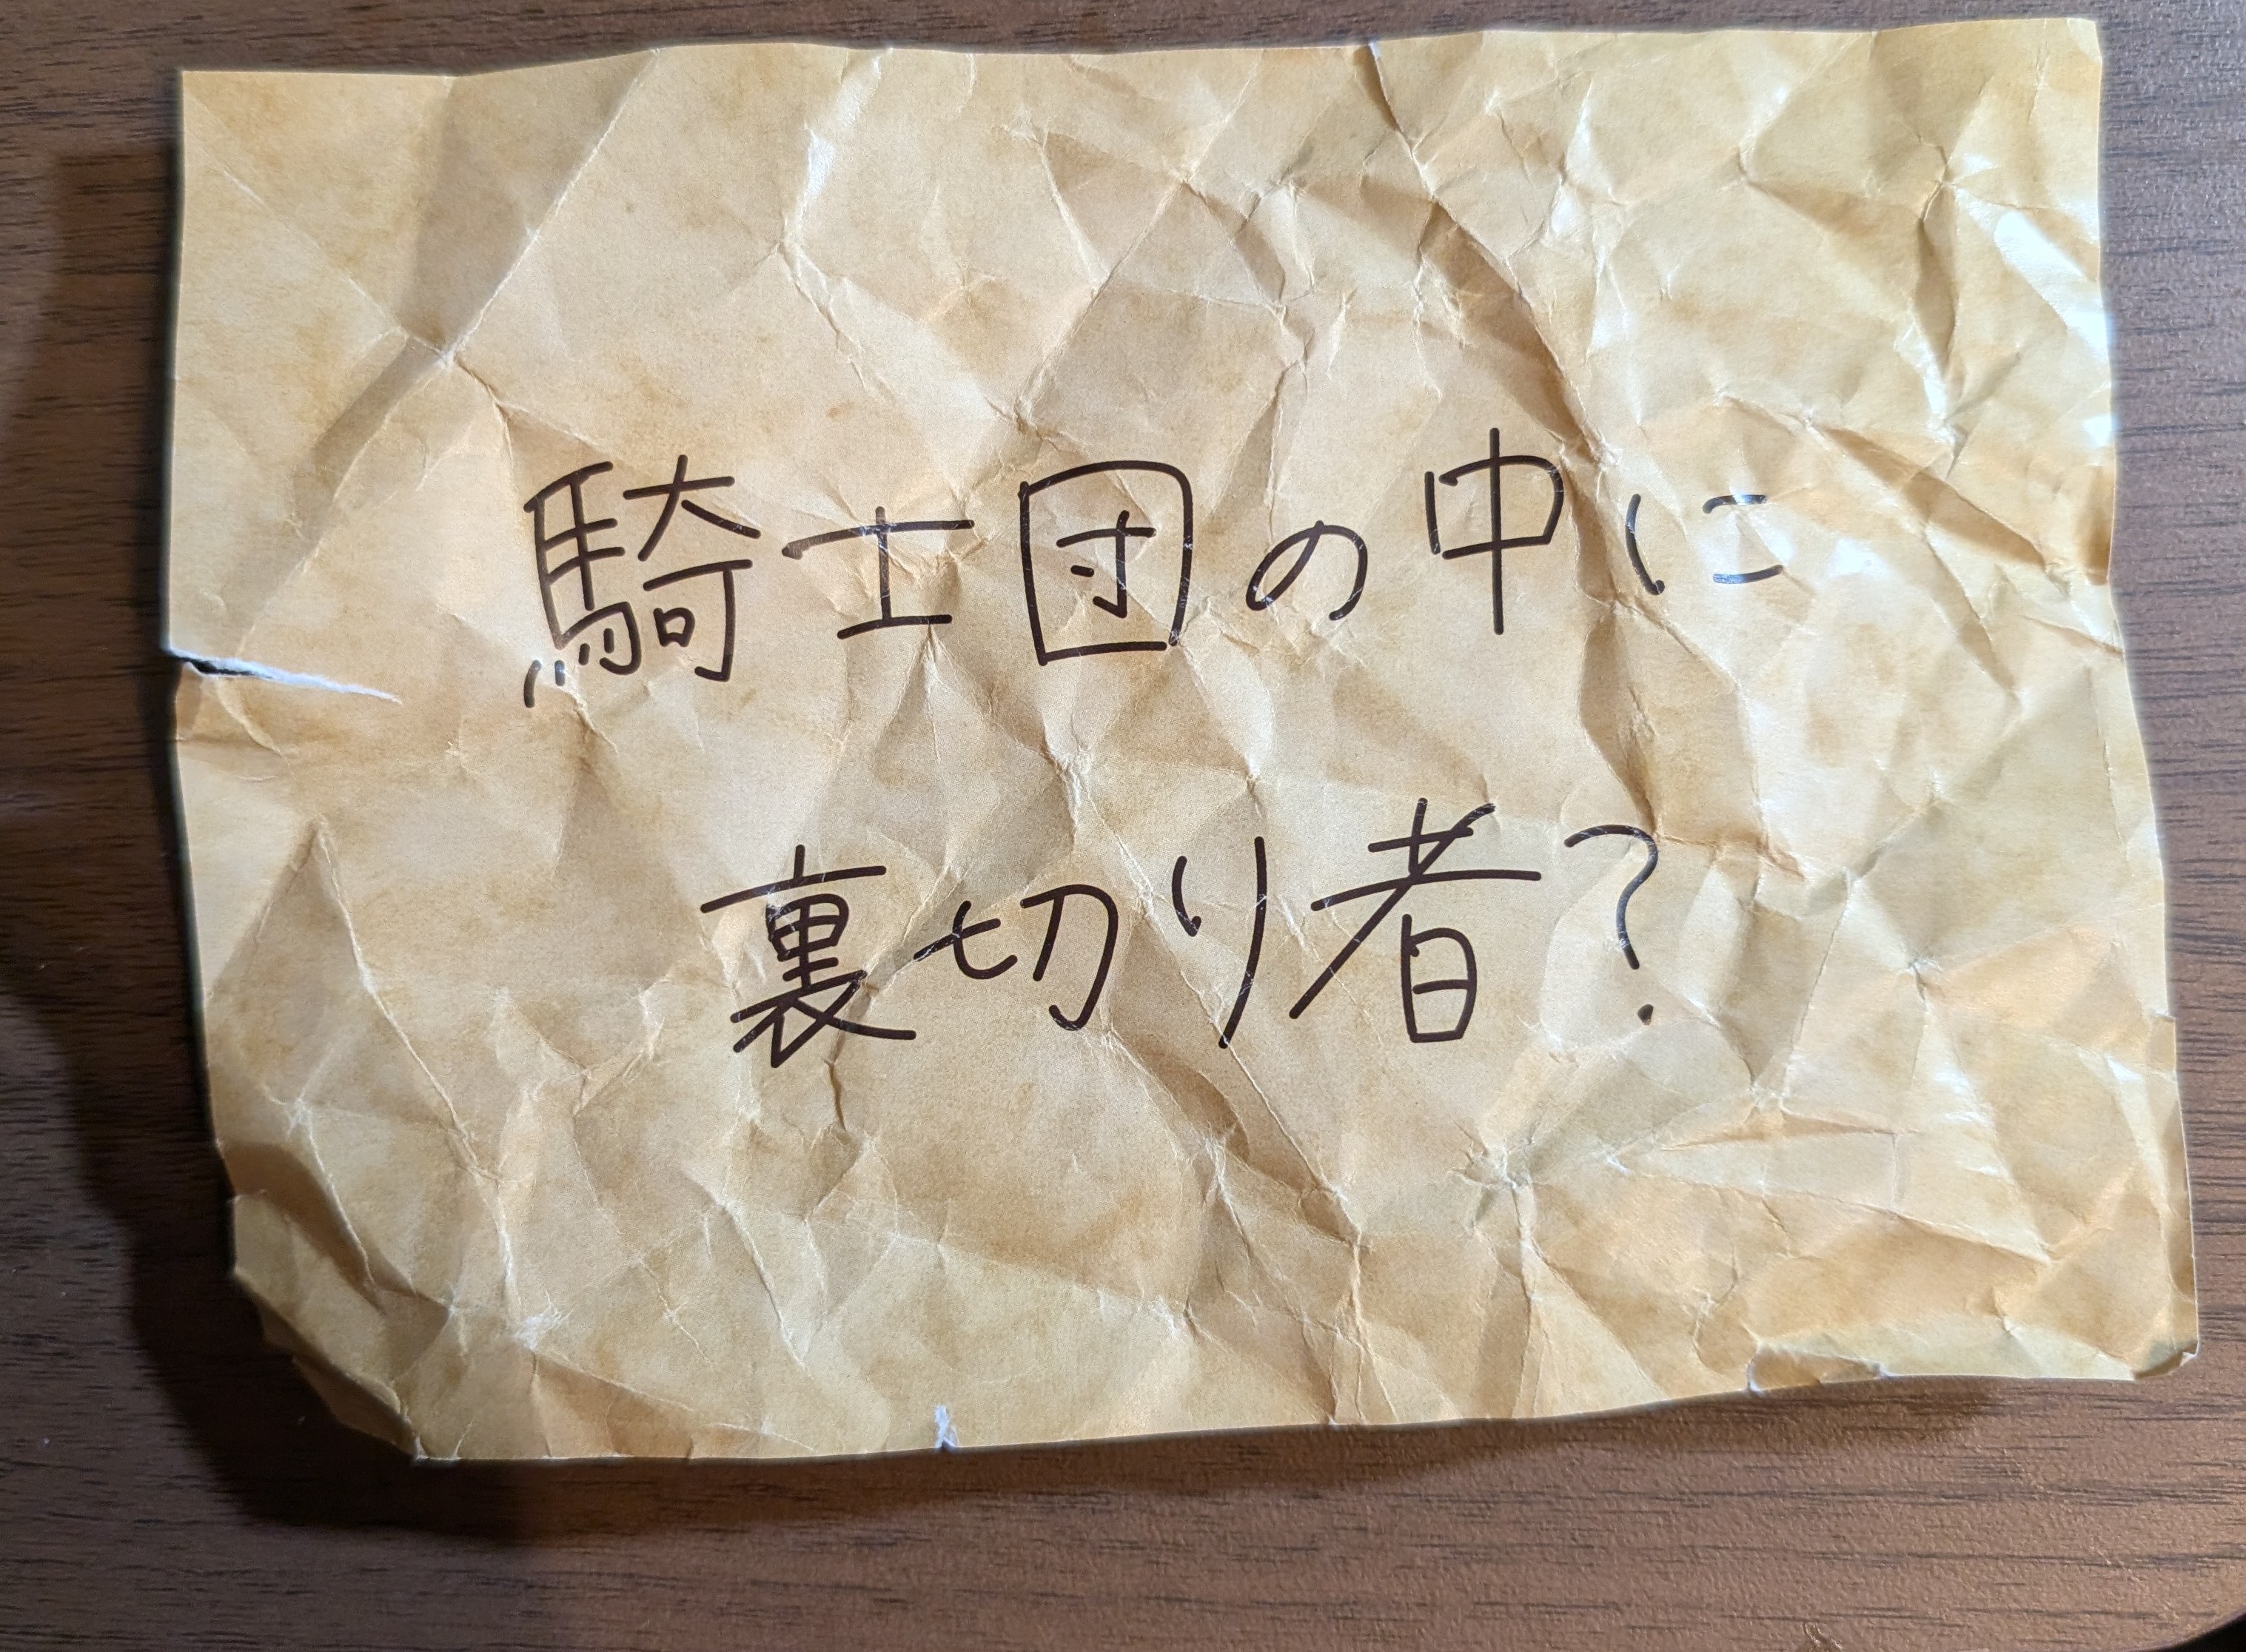 騎士団の中に
裏切り者?